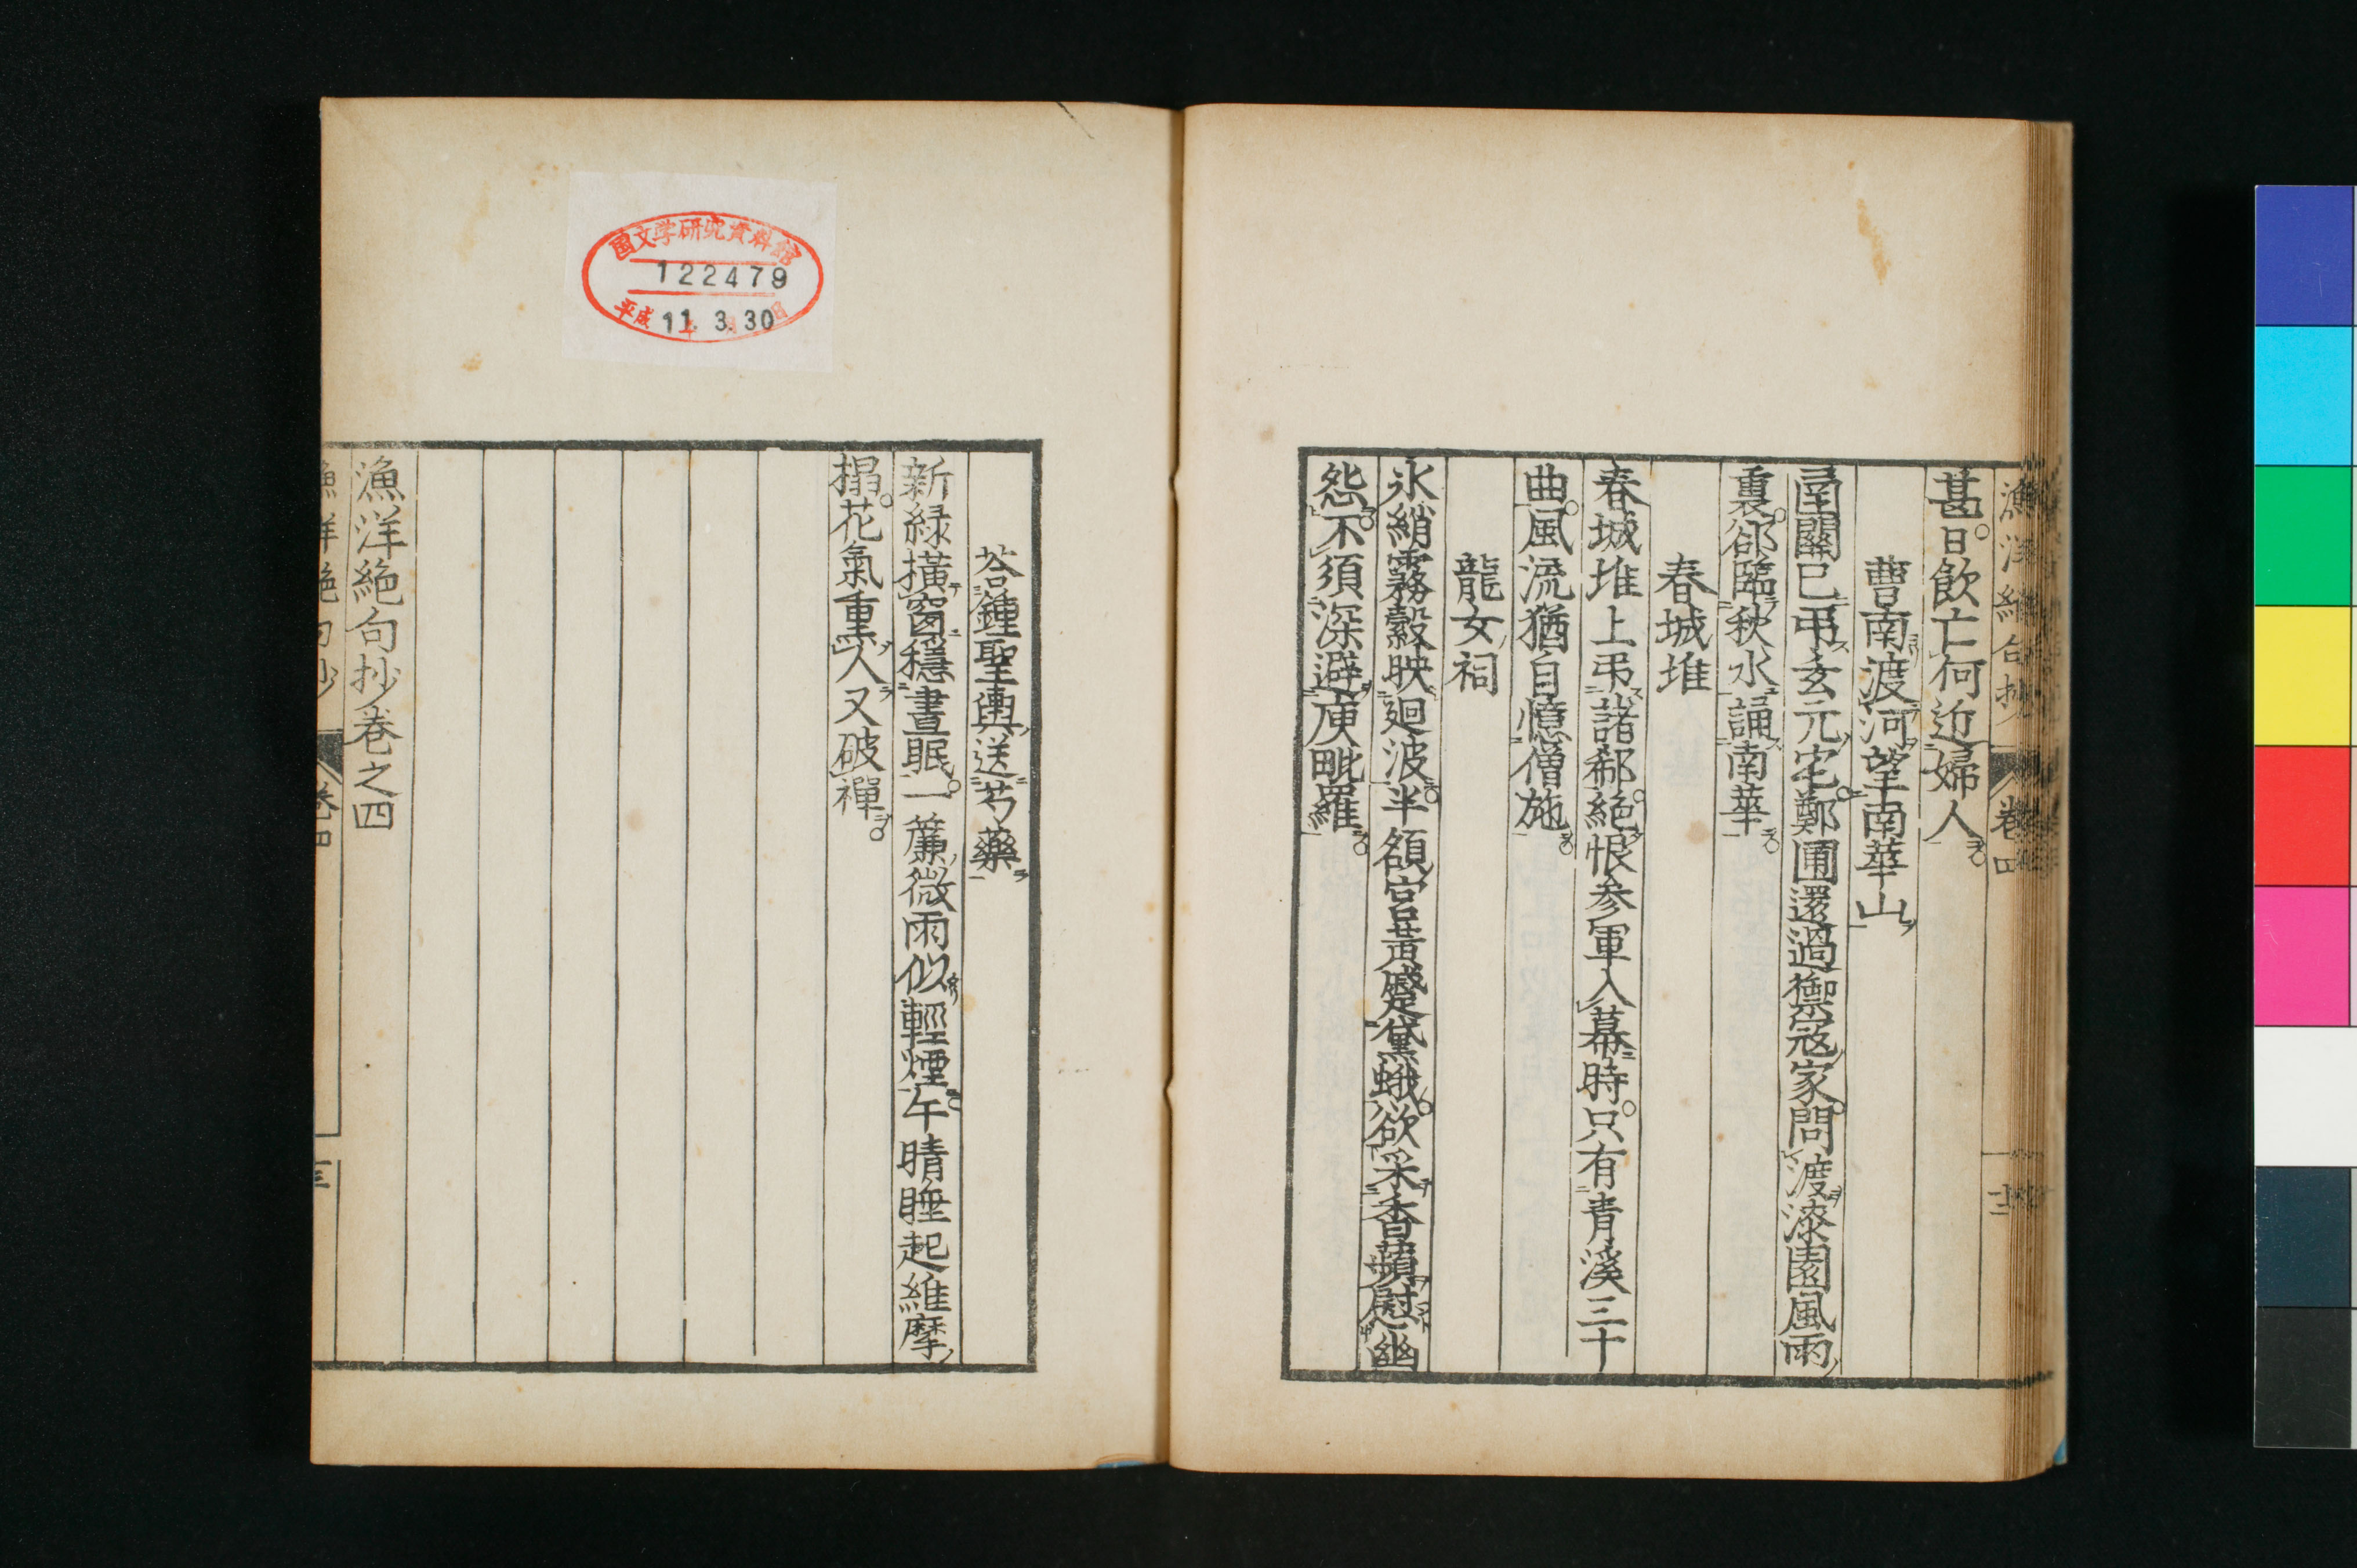 漁洋絶句抄 卷四
甚日飲亡何近婦人
曹南渡河望南華山
圉關已弔玄元宅鄭圃還過御寇家問渡漆園風雨
裏郤臨秋水誦南華
春城堆
春城堆上弔諸郗絶恨参軍入幕時只有青溪三十
曲風流猶自憶僧施
龍女祠
氷綃霧縠映廻波半額宮黃蹙黛蛾欲采香蘋慰幽
怨不須深避庾毗羅
荅鍾聖輿送芍藥
新緑横窗穩晝眠一簾微雨似輕煙午晴睡起維摩
榻花氣重人又破禪
漁洋絶句抄卷之四
漁洋絶句抄 卷四
国文学研究資料館
122479
平成11.3.30